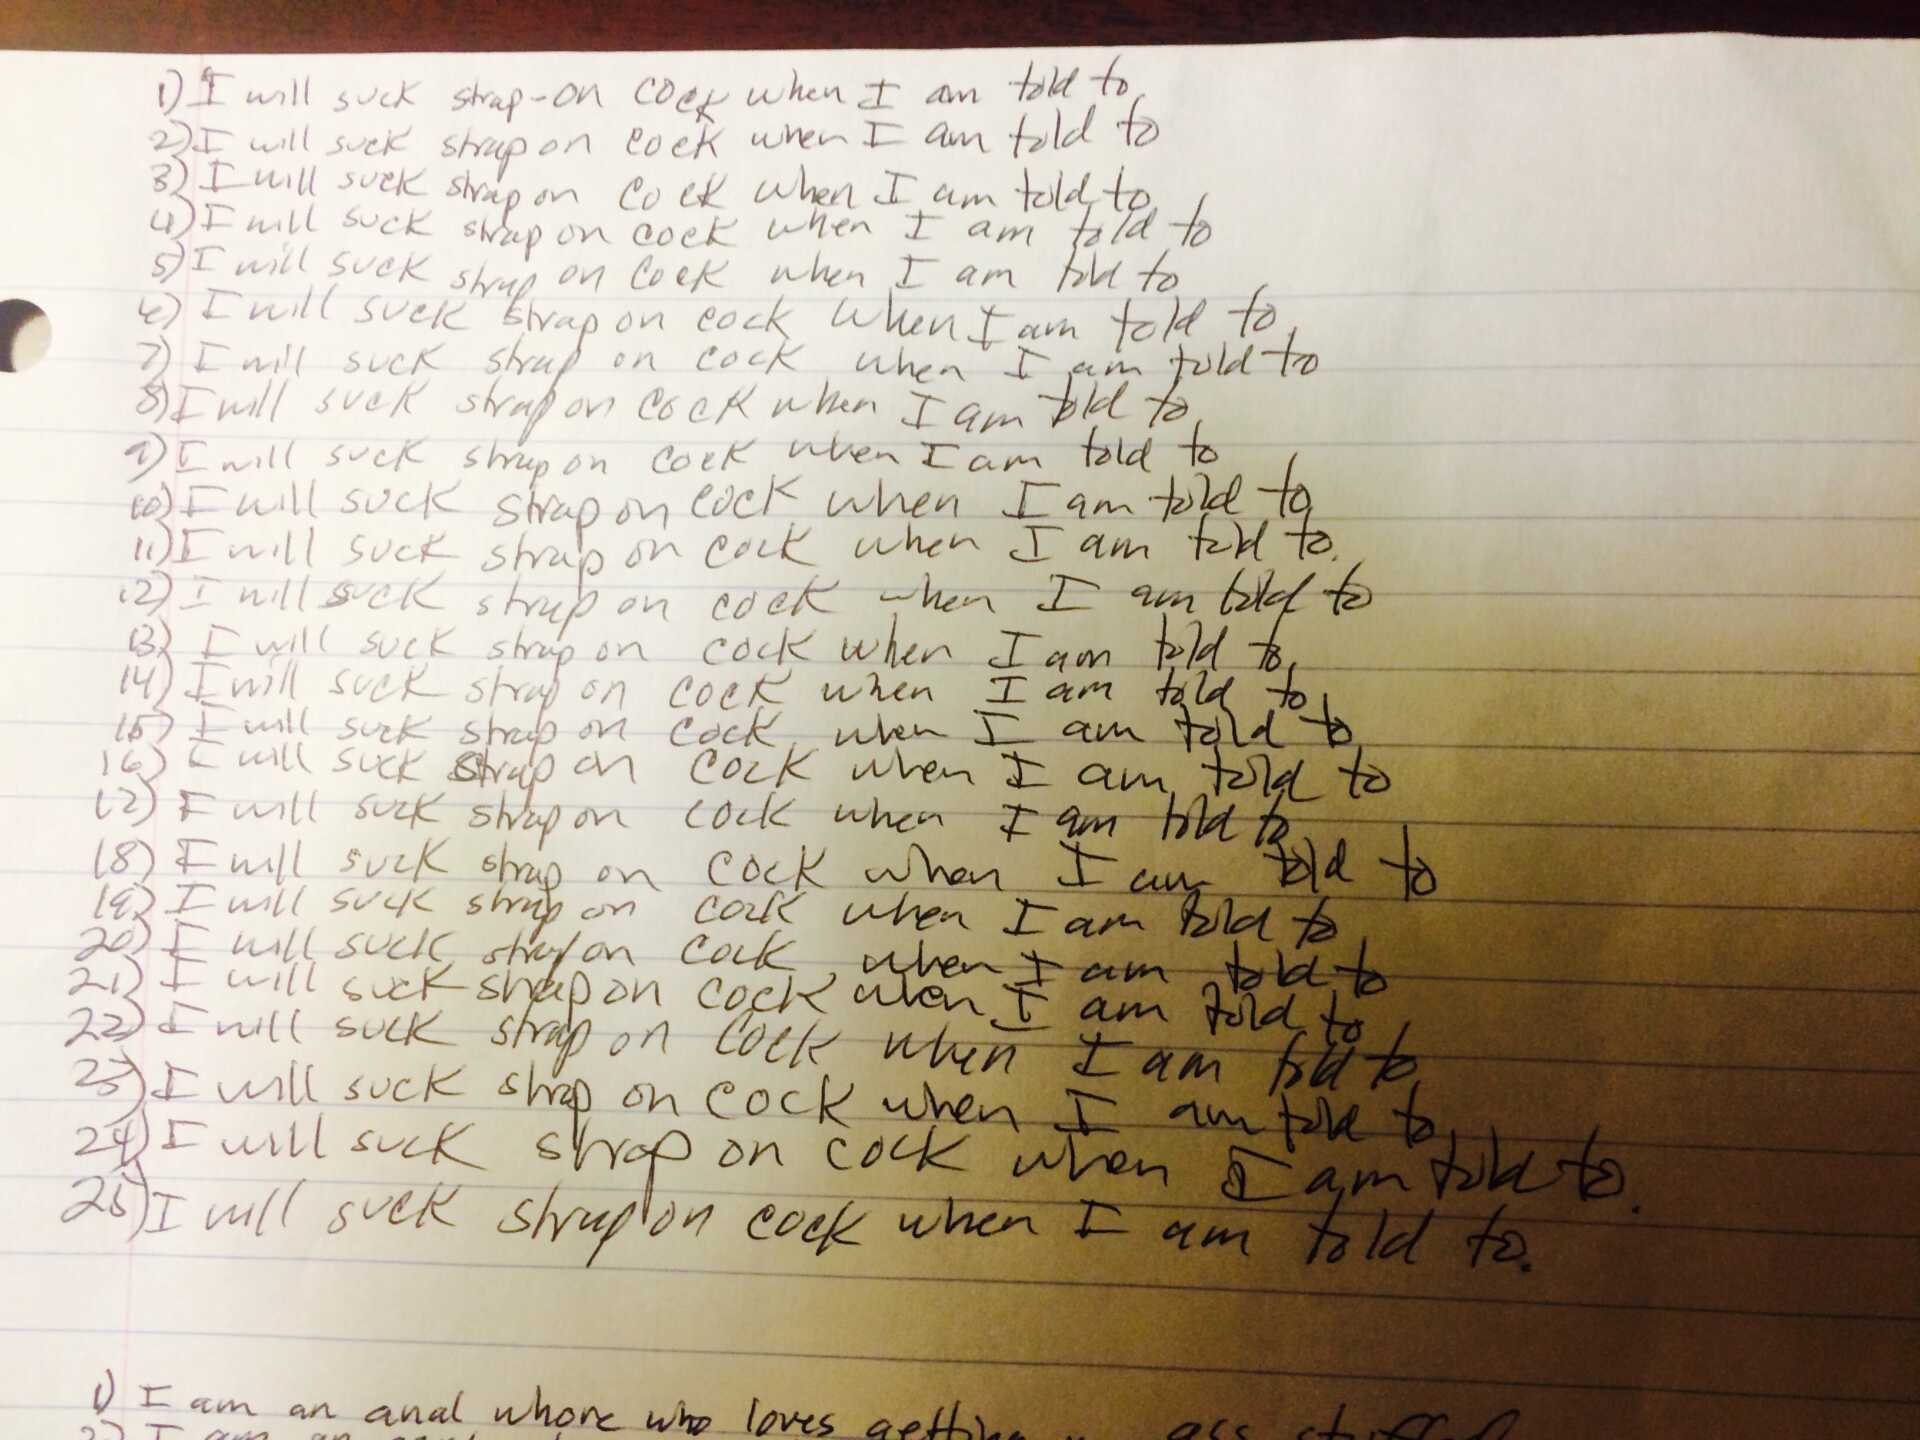 1) I will suck strap-on cock when I am told to
2) I will suck strap on cock when I am told to
3) I will suck strap on cock when I am told to
4) I will suck strap on cock when I am told to
5) I will suck strap on cock when I am told to
6) I will suck strap on cock when I am told to
7) I will suck strap on cock when I am told to
8) I will suck strap on cock when I am told to
9) I will suck strap on cock when I am told to
10) I will suck strap on cock when I am told to
11) I will suck strap on cock when I am told to.
12) I will suck strap on cock when I am told to
13) I will suck strap on cock when I am told to.
14) I will suck strap on cock when I am told to
15) I will suck strap on cock when I am told to
16) I will suck strap on cock when I am told to
17) I will suck strap on cock when I am told to
18) I will suck strap on cock when I am told to
19) I will suck strap on cock when I am told to
20) I will suck strap on cock when I am told to
21) I will suck strap on cock when I am told to
22) I will suck strap on cock when I am told to
23) I will suck strap on cock when I am told to
24) I will suck strap on cock when I am told to.
25) I will suck strap on cock when I am told to.
1) I am an anal whore who loves getting my ass stuffed
2) I am an